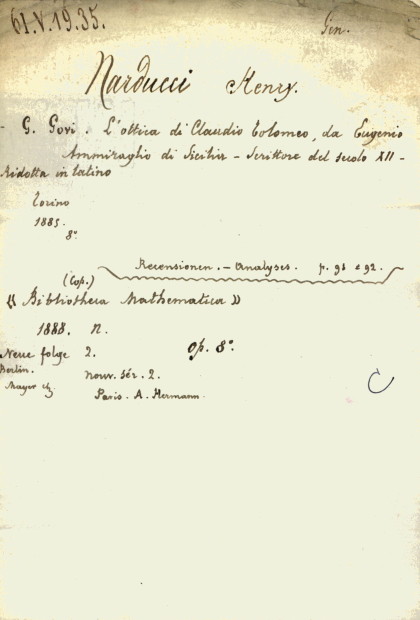 61.V.19.35.
Gen.
Narducci Henry.
- G. Govi. L'ottica di Claudio Tolomeo, da Eugenio
Ammiraglio di Sicilia - Scrittore del secolo XII -
Ridotta in latino
Torino
1885.
8°
Recensionen. - Analyses. p. 91 e 92.
(Cop.)
« Bibliotheca Mathematica »
1888. n.
Neue folge 2. Op. 8°.
Berlin. nouv. sér. 2.
Mayer
Paris. A. Hermann.
C